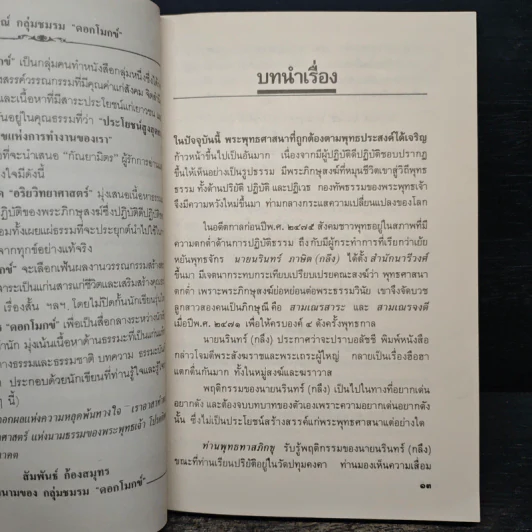 ณ์ กลุ่มชมรม "ดอกโมกข์"
เป็นกลุ่มคนทำหนังสือกลุ่มหนึ่งซึ่งได้
สรรค์วรรณกรรมที่มีคุณค่าแก่สังคม
และเนื้อหาที่มีสาระประโยชน์แก่เยาวชน
อยู่ในคุณธรรมที่ว่า "ประโยชน์สูงสุด
ขแห่งการทำงานของเรา"
ที่จะนำเสนอ "กัณยามิตร" ผู้รักการอ่าน
ใจมีดังนี้
"อริยวิทยาศาสตร์" มุ่งเสนอเนื้อหา
ปฏิบัติของพระภิกษุสงฆ์ซึ่งปฏิบัติดีปฏิบัติ
รวมทั้งเผยแผ่ธรรมะที่จะประยุกต์นำไปใช้ใน
จากทุกข์อย่างแท้จริง
จะเลือกเฟ้นผลงานวรรณกรรมสร้าง
สาระเป็นแก่นสารแก่ชีวิตและเสริมสร้างคุณ
เรื่องสั้น ฯลฯ. โดยไม่ปิดกั้นนักเขียนรุ่นใหม่
"ดอกโมกข์" เพื่อเป็นสื่อกลางระหว่างนัก
มุ่งเน้นเนื้อหาด้านธรรมะที่เป็นแก่นแท้
ทางธรรมและธรรมชาติ บทความ ธรรมะบันเทิง
ประกอบด้วยนักเขียนที่ท่านรู้ใจและรู้จัก
ๆ นี้)
ออกผลแห่งความหลุดพ้นทางใจ
ศาสตร์ แห่งนามธรรมของพระพุทธเจ้า
สัมพันธ์ ก้องสมุทร
นามของ กลุ่มชมรม "ดอกโมกข์"
บทนำเรื่อง
ในปัจจุบันนี้ พระพุทธศาสนาที่ถูกต้องตามพุทธประสงค์ได้เจริญ
ก้าวหน้าขึ้นไปเป็นอันมาก เนื่องจากมีผู้ปฏิบัติดีปฏิบัติชอบปรากฏ
ขึ้นให้เห็นอย่างเป็นรูปธรรม มีพระภิกษุสงฆ์ที่หมุนชีวิตเข้าสู่วิถีพุทธ
ธรรม ทั้งด้านปริยัติ ปฏิบัติ และปฏิเวธ กองทัพธรรมของพระพุทธเจ้า
จึงมีความหวังใหม่ขึ้นมา ท่ามกลางกระแสความเปลี่ยนแปลงของโลก
ในอดีตกาลก่อนปีพ.ศ. ๒๔๗๕ สังคมชาวพุทธอยู่ในสภาพที่มี
ความตกต่ำด้านการปฏิบัติธรรม ถึงกับมีผู้กระทำการที่เรียกว่าเย้ย
หยันพุทธจักร นายนรินทร์ ภาษิต (กลึง) ได้ตั้ง สำนักนารีวงศ์
ขึ้นมา มีเจตนากระทบกระเทียบเปรียบเปรยคณะสงฆ์ว่า พุทธศาสนา
ตกต่ำ เพราะพระภิกษุสงฆ์ย่อหย่อนต่อพระธรรมวินัย เขาจึงจัดบวช
ลูกสาวสองคนเป็นภิกษุณี คือ สามเณรสาระ และ สามเณรจงดี
เมื่อปีพ.ศ. ๒๔๗๑ เพื่อให้ครบองค์ ๔ ดังครั้งพุทธกาล
นายนรินทร์ (กลึง) ประกาศว่าจะปราบอลัชชี พิมพ์หนังสือ
กล่าวโจมตีพระสังฆราชและพระเถระผู้ใหญ่ กลายเป็นเรื่องฮือฮา
แตกตื่นกันมาก ทั้งในหมู่สงฆ์และฆราวาส
พฤติกรรมของนายนรินทร์ (กลึง) เป็นไปในทางที่อยากเด่น
อยากดัง และต้องจบบทบาทของตัวเองเพราะความอยากเด่นอยากดัง
นั้น ซึ่งไม่เป็นประโยชน์สร้างสรรค์แก่พระพุทธศาสนาแต่อย่างใด
ท่านพุทธทาสภิกขุ รับรู้พฤติกรรมของนายนรินทร์ (กลึง)
ขณะที่ท่านเรียนปริยัติอยู่ในวัดปทุมคงคา ท่านมองเห็นความเสื่อม
๑๓